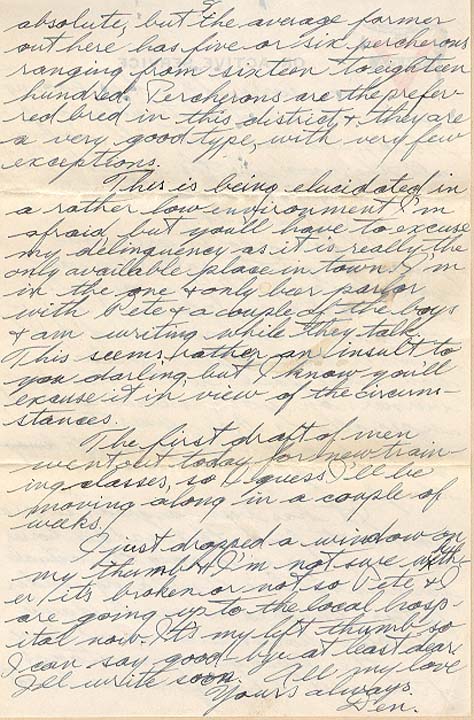 absolute, but the average farmer
out here has five or six percherons
ranging from sixteen to eighteen
hundred. Percherons are the prefer-
red bred in this district, & they are
a very good type, with very few
exceptions.
This is being elucidated in
a rather low environment I'm
afraid, but you'll have to excuse
my delinquency as it is really the
only available place in town. I'm
in the one & only beer parlor
with Pete & a couple of the boys
& am writing while they talk.
This seems rather an insult to
you darling, but I know you'll
excuse it in view of the circum-
stances.
The first draft of men
went out today for new train-
ing classes, so I guess I'll be
moving along in a couple of
weeks.
I just dropped a window on
my thumb & I'm not sure wheth-
er it's broken or not so Pete & I
are going up to the local hosp-
ital now. It's my left thumb, so
I can say good-bye at least dear.
I'll write soon. All my love
Yours always.
Den.